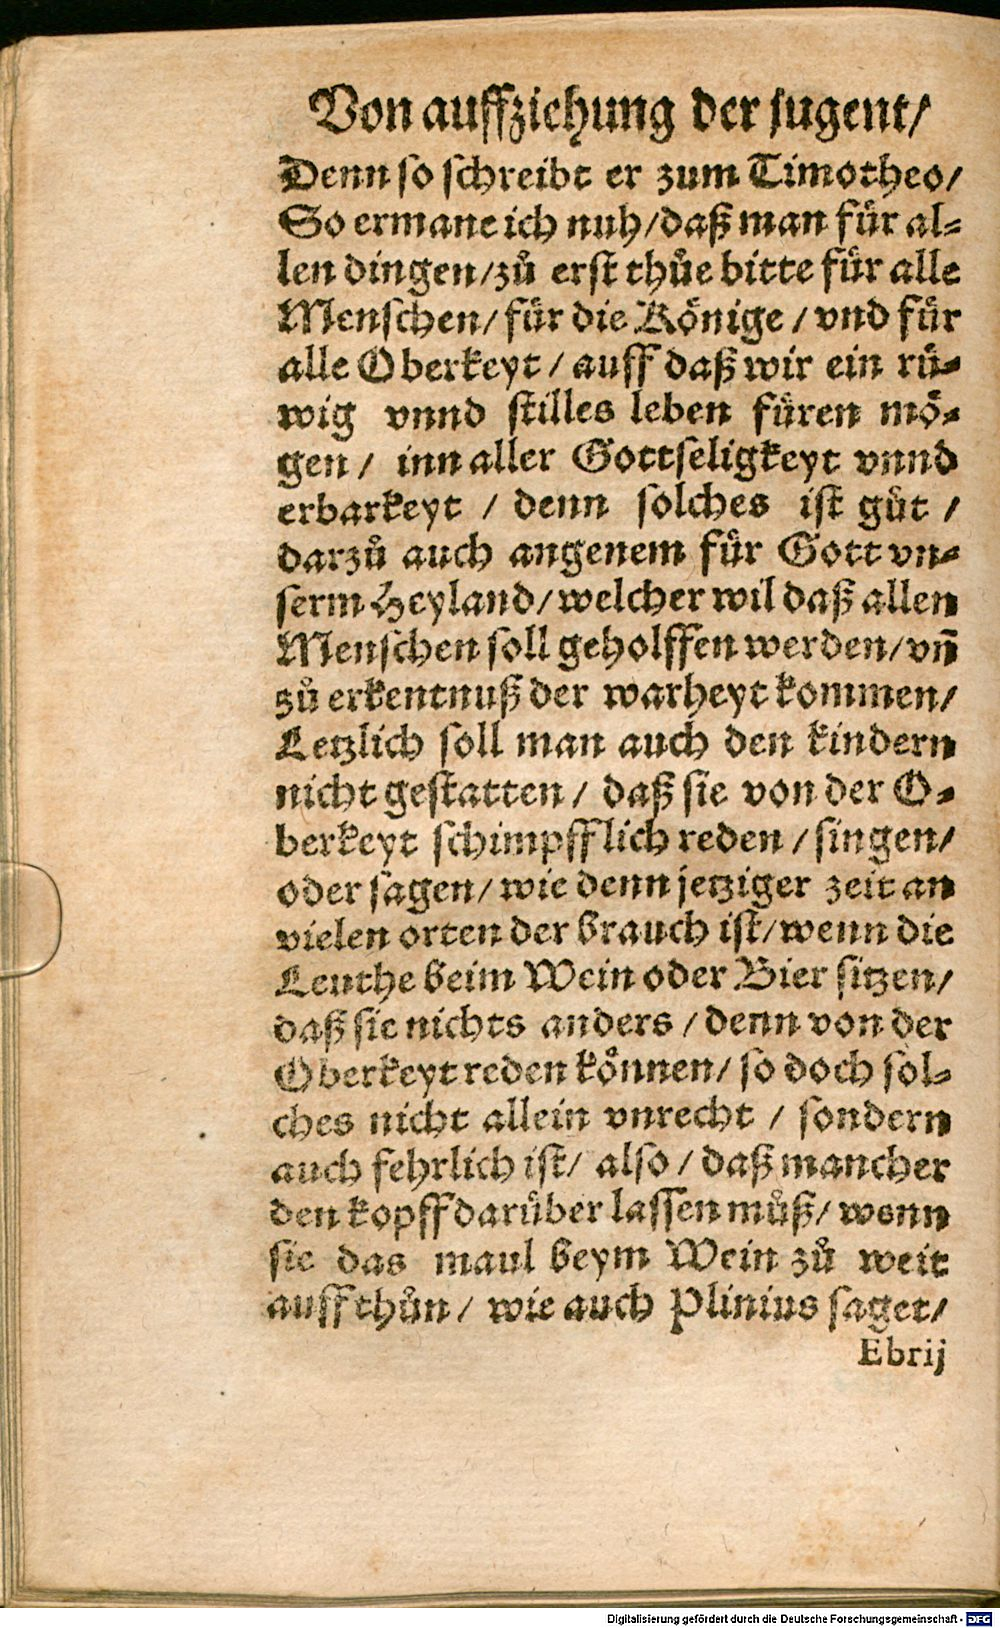 Von auffziehung der jugent/
Denn so schreibt er zum Timotheo/
So ermane ich nuh/daß man fuͤr al⸗
len dingen/zuͦ erst thuͤe bitte fuͤr alle
Menschen/ fuͤr die Koͤnige / vnd fuͤr
alle Oberkeyt / auff daß wir ein ruͤ⸗
wig vnnd stilles leben fuͤren moͤ⸗
gen / inn aller Gottseligkeyt vnnd
erbarkeyt / denn solches ist guͦt /
darzuͦ auch angenem fuͤr Gott vn⸗
serm Heyland/welcher wil daß allen
Menschen soll geholffen werden/vñ
zuͦ erkentnuß der warheyt kommen/
Letzlich soll man auch den kindern
nicht gestatten / daß sie von der O⸗
berkeyt schimpfflich reden / singen/
oder sagen/ wie denn jetziger zeit an
vielen orten der brauch ist/wenn die
Leuthe beim Wein oder Bier sitzen/
daß sie nichts anders / denn von der
Oberkeyt reden koͤnnen/ so doch sol⸗
ches nicht allein vnrecht / sondern
auch fehrlich ist/ also / daß mancher
den kopff daruͤber lassen muͦß/ wenn
sie das maul beym Wein zuͦ weit
auffthuͦn / wie auch Plinius saget/
Ebrij
Digitalisierung gefördert durch die Deutsche Forschungsgemeinschaft - DFG